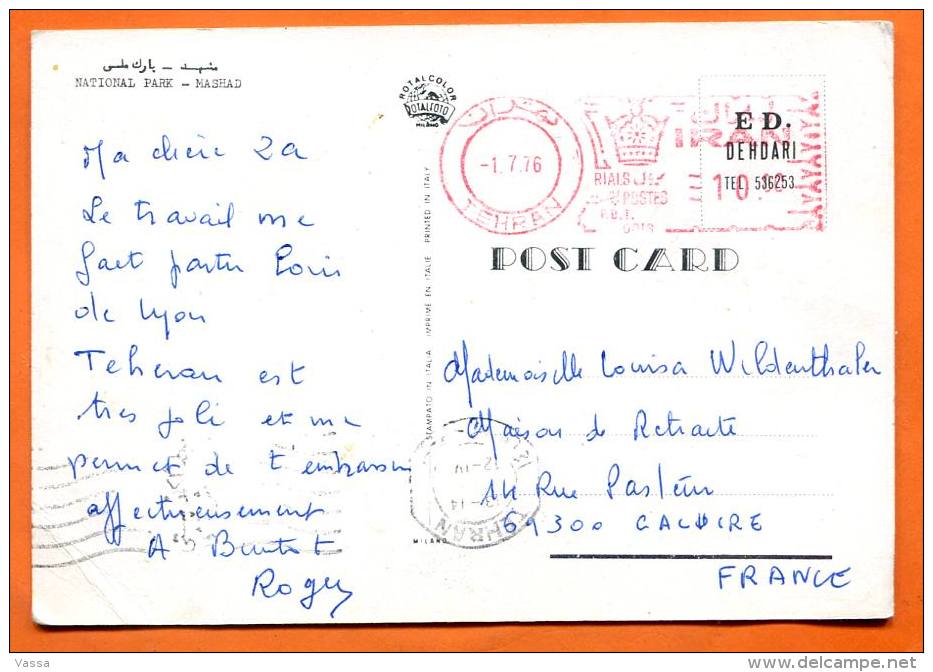 مشهد – پارك ملى
NATIONAL PARK - MASHAD
Ma chère Za
Le travail me
fait partir loin
de Lyon
Teheran est
tres joli et me
permet de t'embrasser
affectueusement
A Bientot
Roger
ROTALCOLOR
ROTALFOTO
MILANO
STAMPATO IN ITALIA IMPRIME EN ITALIE PRINTED IN ITALY
MILANO
تهران
-1.7.76
TEHRAN
IRAN
RIALS
POSTES
10
ED.
DEHDARI
TEL 536253
POST CARD
Mademoiselle Louisa Wildenthaler
Maison de Retraite
14 Rue Pasteur
69300 CALUIRE
FRANCE
TEHRAN
Vassa
www.delcampe.net